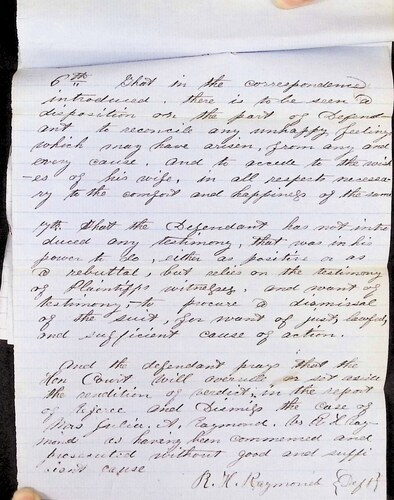 6th That in the correspondence
introduced. there is to be seen a
disposition on the part of Defend-
ant to reconcile any unhappy feeling
which may have arisen, from any and
every cause. and to accede to the wish
-es of his wife, in all respects necessa
ry to the comfort and happiness of the same
7th. That the Defendant has not intro
duced any testimony, that was in his
power to do, either as positive or as
a rebuttal, but relies on the testimony
of Plaintiffs witnesses, and want of
testimony, to procure a dismissal
of the suit, for want of just, lawful,
and sufficient cause of action.
And the defendant prays that the
Hon Court will overrule or set aside
the rendition of verdict, in the report
of Referee and Dismiss the case of
Mrs Julia. A. Raymond. vs R H Ray-
mond as having been commenced and
prosecuted without good and suffi
cient cause
R. H. Raymond {Deft}